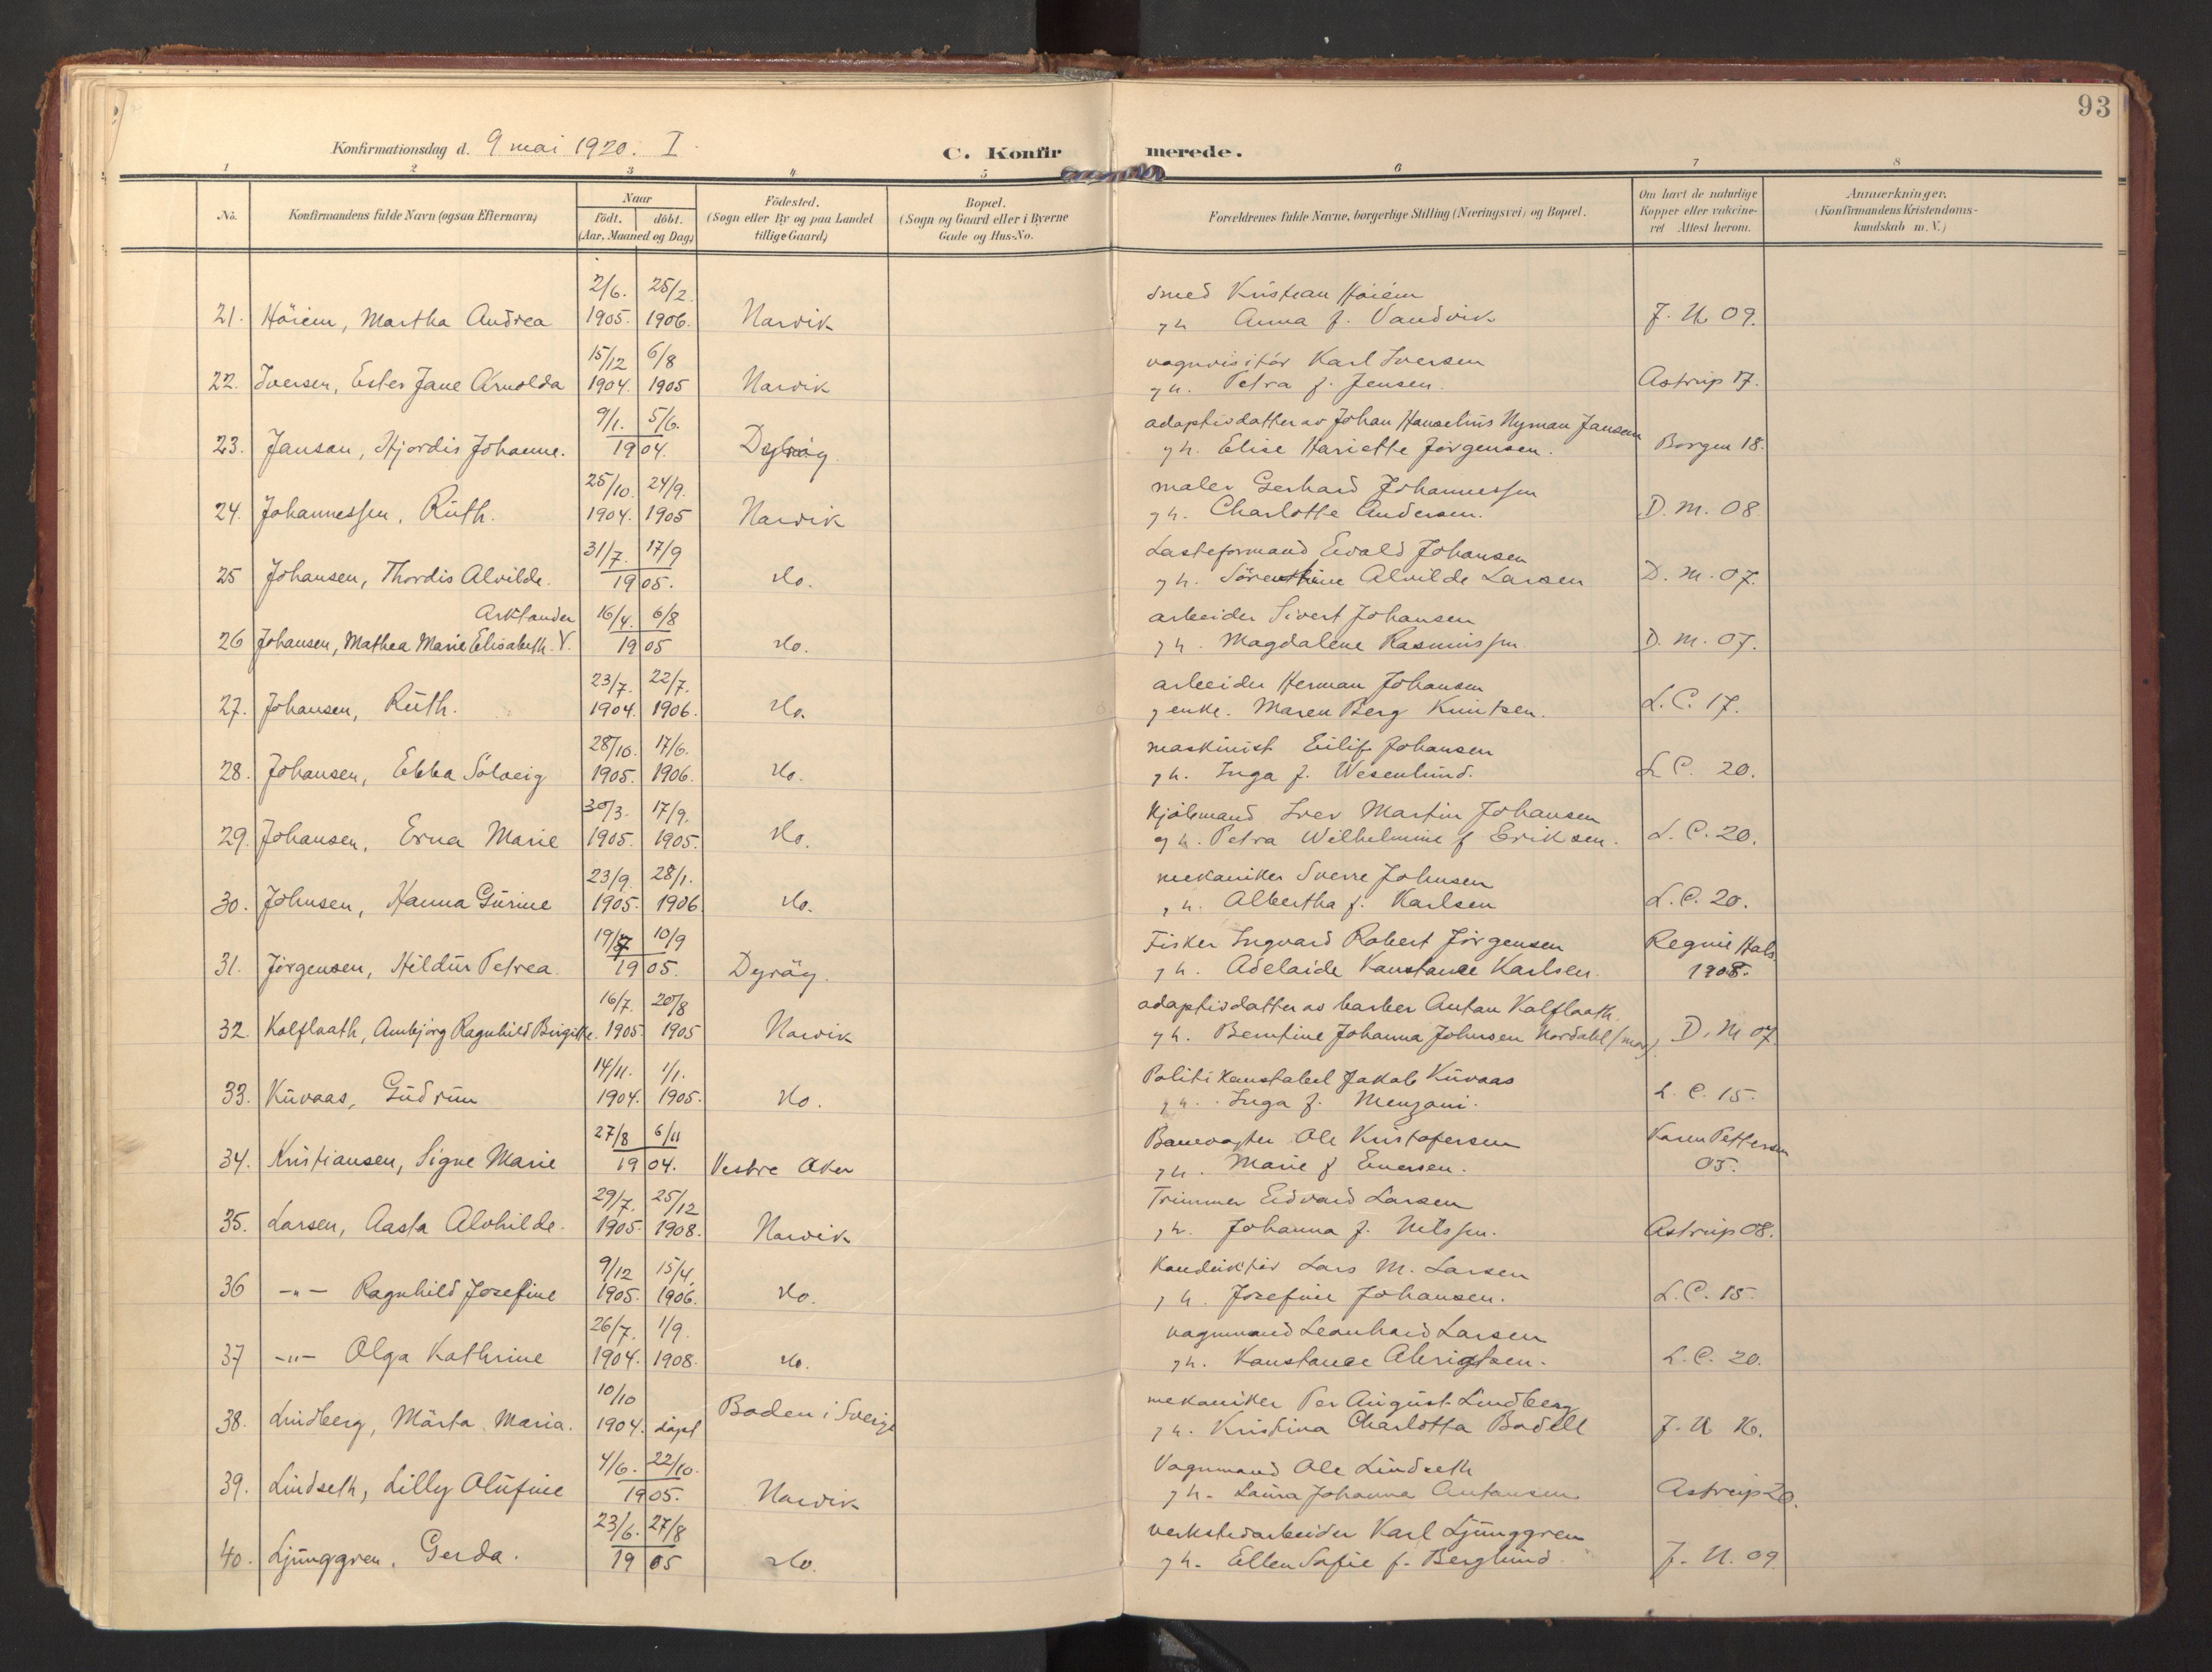 93
Konfirmationsdag d. 9 mai 1920. I
C. Konfirmerede.
1 2 3 4 5 6 7 8
No. Konfirmandens fulde Navn (ogsaa Efternavn) Naar födt. döbt. (Aar, Maaned og Dag) Födested. (Sogn eller By og paa Landet tillige Gaard) Bopæl. (Sogn og Gaard eller i Byerne Gade og Hus-No. Forældrenes fulde Navne, borgerlige Stilling (Næringsvei) og Bopæl. Om havt de naturlige Kopper eller vakcineret Attest herom. Anmærkninger. (Konfirmandens Kristendomskundskab m. V.)
2/6. 25/2. smed Kristian Höiem
21. Höiem, Martha Andrea 1905. 1906. Narvik gh Anna f. Vandvik J. N. 09.
15/12 6/8 vognvisitör Karl Iversen
22. Iversen, Ester Jane Arnolda 1904. 1905 Narvik gh. Petra f. Jensen. Astrup 17.
9/1. 5/6. adoptivdatter av Johan Hanselius Nyman Janson
23. Janson, Hjordis Johanne. 1904. Dyröy. gh. Elise Hariette Jörgensen. Borgen 18.
25/10. 24/9. maler Gerhard Johannessen
24. Johannessen, Ruth. 1904. 1905 Narvik gh. Charlotte Andersen. D. M. 08
31/7. 17/9 Lasteformand Evald Johansen
25 Johansen, Thordis Alvilde. 1905. do. gh. Alvilde Larsen D. M. 07.
Arktander 16/4. 6/8 arbeider Sivert Johansen
26 Johansen, Mathea Marie Elisabeth. V. 1905 do. gh. Magdalene Rasmussen D. M. 07.
23/7. 22/7. arbeider Herman Johansen
27. Johansen, Ruth. 1904. 1906. do. genke. Maren Berg Knutsen. L. C. 17.
28/10. 17/6. maskinist Eilif Johansen
28. Johansen, Ebba Solveig 1905. 1906. do. gh. Inga f. Wesenlund. L. C. 20.
30/3. 17/9. Iver Martin Johansen
29. Johansen, Erna Marie 1905. 1905. do. gh. Petra Wilhelmine f Eriksen. L. C. 20.
23/9. 28/1. mekaniker Sverre Johnsen
30. Johnsen, Hanna Gurine 1905. 1906 do. gh. Albertha f. Karlsen L. C. 20.
19/7 10/9 Fisker Ingvard Robert Jörgensen Regine Hals
31. Jörgensen, Hildur Petrea. 1905. Dyröy. gh. Adelaide Konstance Karlsen. 1908.
16/7. 20/8 adoptivdatter av barber Anton Kolflaath.
32. Kolflaath, Annbjörg Ragnhild Birgitte. 1905 1905 Narvik gh. Berntine Johanna Johnsen Nordahl D. M 07
14/11. 1/1. Politikonstabel Jakob Kuvaas
33. Kuvaas, Gudrun 1904. 1905. do. gh. Inga f. Menzoni. L. C. 15.
27/8 6/11 Banevogter Ole Kristofersen Karen Pettersen
34. Kristiansen, Signe Marie 1904. Vestre Aker gh. Marie f Enersen. 05.
29/7. 25/12 Trimmer Edvard Larsen
35. Larsen, Aasta Alvhilde. 1905. 1908. Narvik gh. Johanna f. Nilssen. Astrup 08.
9/12 15/4. Konduktör Lars M. Larsen
36 -"- Ragnhild Josefine 1905. 1906. do. gh. Josefine Johansen. L. C. 15.
26/7. 1/9. vognmand Leonhard Larsen
37 -"- Olga Kathrine 1904. 1908. do. gh. Konstance L. C. 20.
10/10 mekaniker Per August Lindberg
38. Lindberg, Märta Maria. 1904. döpt Boden i Sverige gh. Kristina Charlotta Bodell J. N 16.
4/6. 22/10. Vognmand Ole Lindseth
39. Lindseth, Lilly Olufine 1905. Narvik gh. Laura Johanna Antonsen Astrup 20.
23/6. 27/8 verkstedarbeider Karl Ljunggren
40. Ljunggren, Gerda. 1905 do. gh. Ellen Sofie f. Berglund J. N. 09